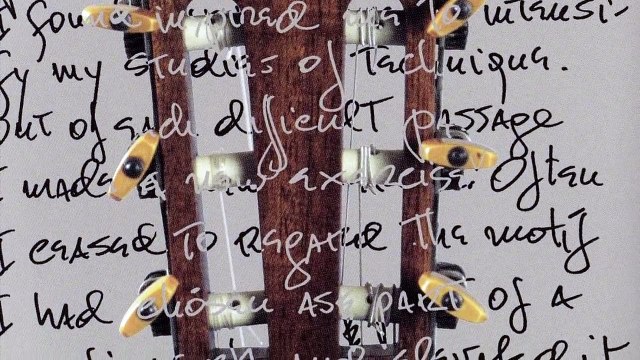 I found inspired me to intensi-
fy my studies of technique.
Out of each difficult passage
I made a new exercise. Often
I ceased to regard the motif
I had chosen as part of a
and elevated it